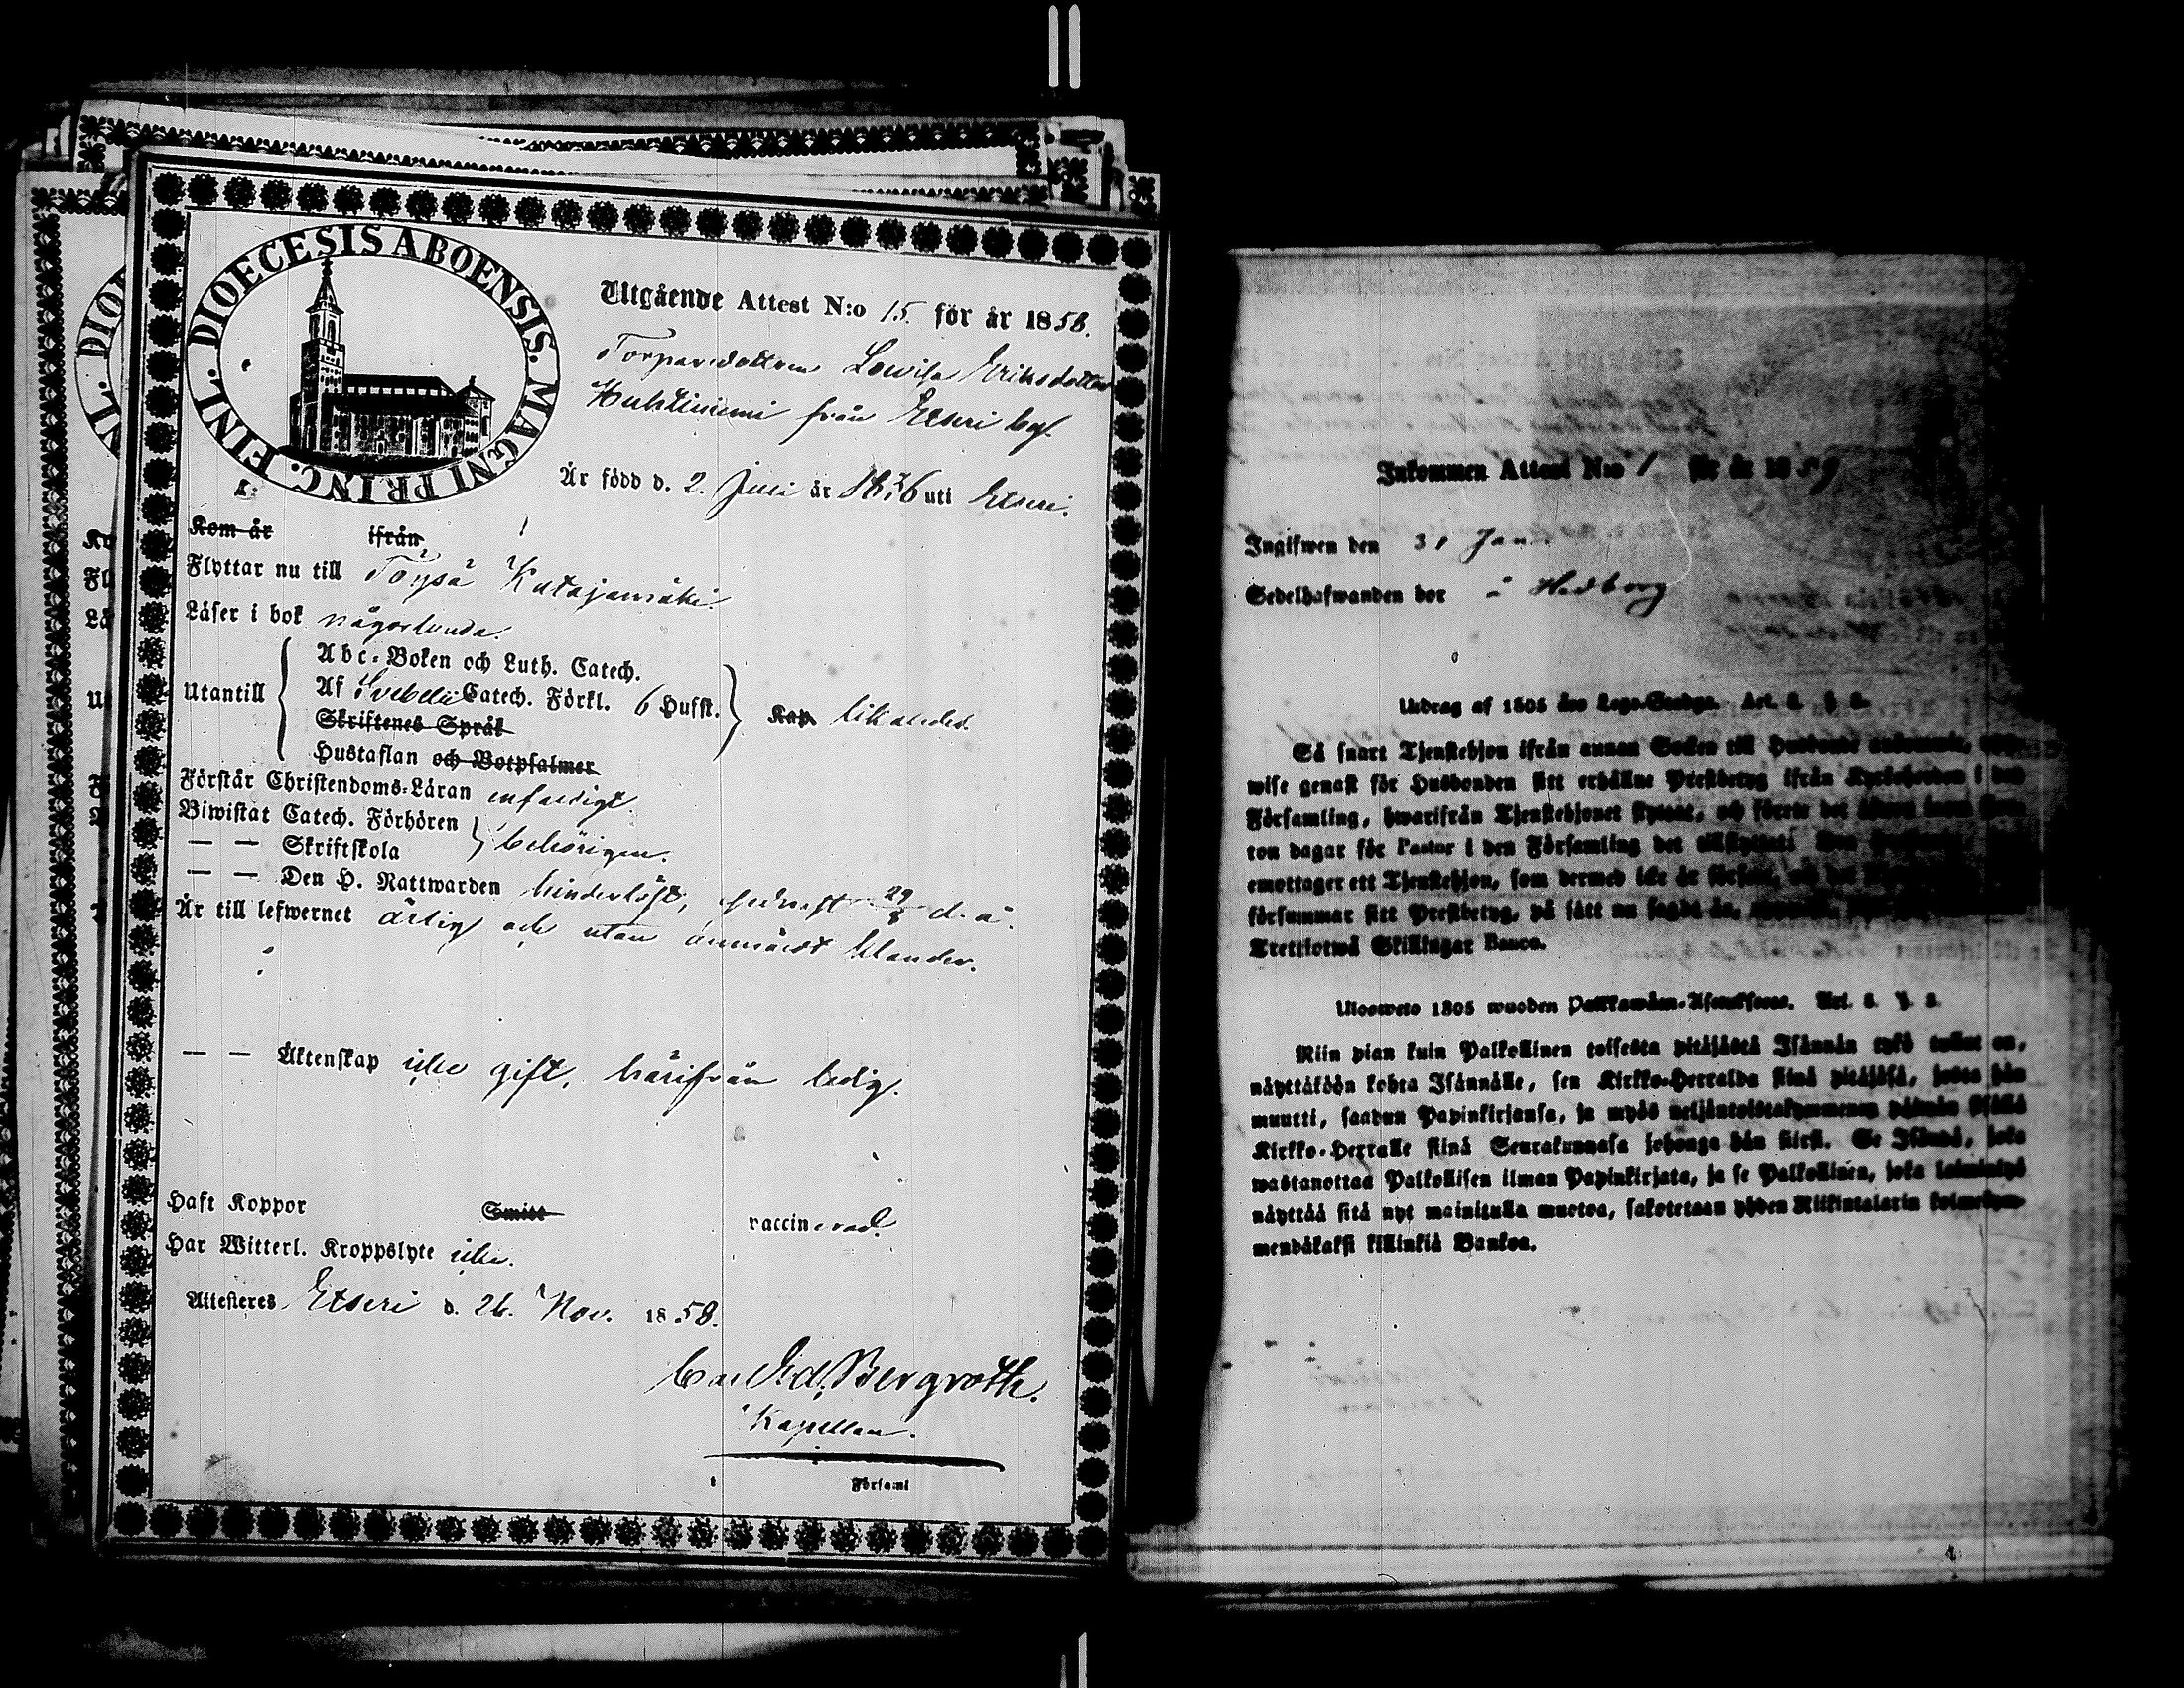 DIOECESIS ABOENSIS. MAGNI PRINC. FINL.
Utgående Attest N:o 15. för år 1858.
Torparedottren Lovisa Eriksdotter
Huhtiniemi från Etseri
Är född d. 2. Juni år 1836 uti Etseri.
Kom år ifrån
Flyttar nu till Töysä Katajamäki
Läser i bok någorlunda.
Utantill
Abc-Boken och Luth. Catech.
Af Svebelii Catech. Förkl. 6 Hufst.
Skriftenes Språk
Hustaflan och Botpsalmer
Kap. likaledes.
Förstår Christendoms-Läran enfaldigt.
Biwistat Catech. Förhören
— — Skriftskola
behörigen.
— — Den H. Nattwarden hinderlöst, sednast 29/8 d. å.
Är till lefwernet ärlig och utan anmärkt klander.
— — Äktenskap icke gift, härifrån ledig.
Haft Koppor Smitt vaccinerad.
Har Witterl. Kroppslyte icke.
Attesteres Etseri d. 26. Nov. 1858.
Carl Ed. Bergroth.
Kapellan.
i Församl
Inkommen Attest N:o 1 för år 1859
Ingifwen den 31 Jan.
Sedelhafwanden bor å Hedborg
Utdrag af 1805 års Lego-Stadga. Art. §
Så snart Tjenstehjon ifrån annan Socken till Husbonde ankommit,
wise genast för Husbonden sitt erhållne Prestbetyg ifrån Kyrkoherden i den
Församling, hwarifrån Tjenstehjonet flyttat, och förete det
ton dagar för Pastor i den Församling det tillflyttat.
emottager ett Tjenstehjon, som dermed icke är försedt, och det
försummar sitt Prestbetyg, på sätt nu sagdt är,
Trettiotwå Skillingar Banco.
Uloswето 1805 wuoden Palkkawäen-Asetuksesta. Art. §
Niin pian kuin Palkollinen toisesta pitäjästä Isännän tykö tullut on,
näyttäköön kohta Isännälle, sen Kirkko-Herralda siinä pitäjäsä, josta hän
muutti, saadun Papinkirjansa, ja myös neljäntoistakymmenen päiwän sisällä
Kirkko-Herralle siinä Seurakunnasa johonga hän siirsi. Se Isändä, joka
wastanottaa Palkollisen ilman Papinkirjata, ja se Palkollinen, joka laiminlyö
näyttää sitä nyt mainitulla muotoa, sakotetaan yhden Riikintalarin kolmekym-
mendäkaksi killinkiä Bankoa.